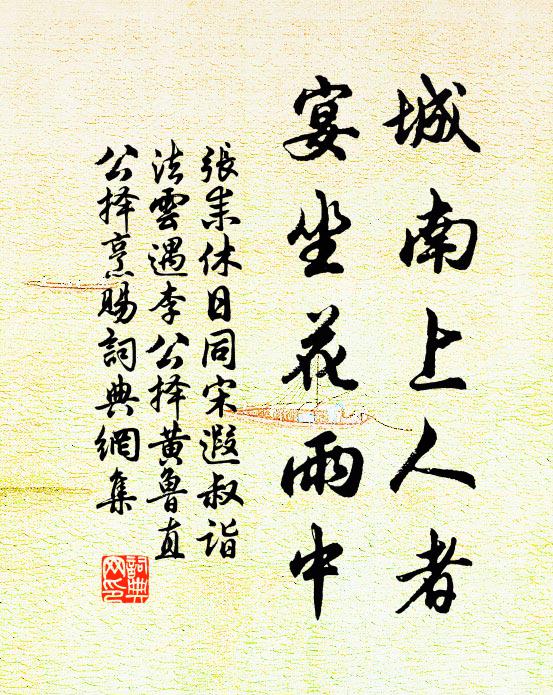 城南上人者
宴坐花雨中
張耒休日同宋遐叔詣
法雲遇李公择黄魯直
公择烹賜詞典網集
詞典
网印